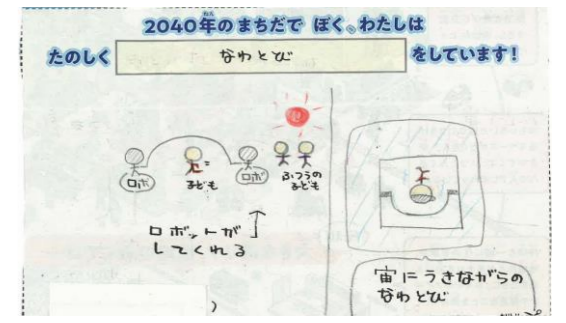 2040年のまちだで ぼく、わたしは
たのしく なわとび をしています!
ロボ
子ども
ロボ
ふつうの
子ども
ロボットが
してくれる
宙にうきながらの
なわとび
)